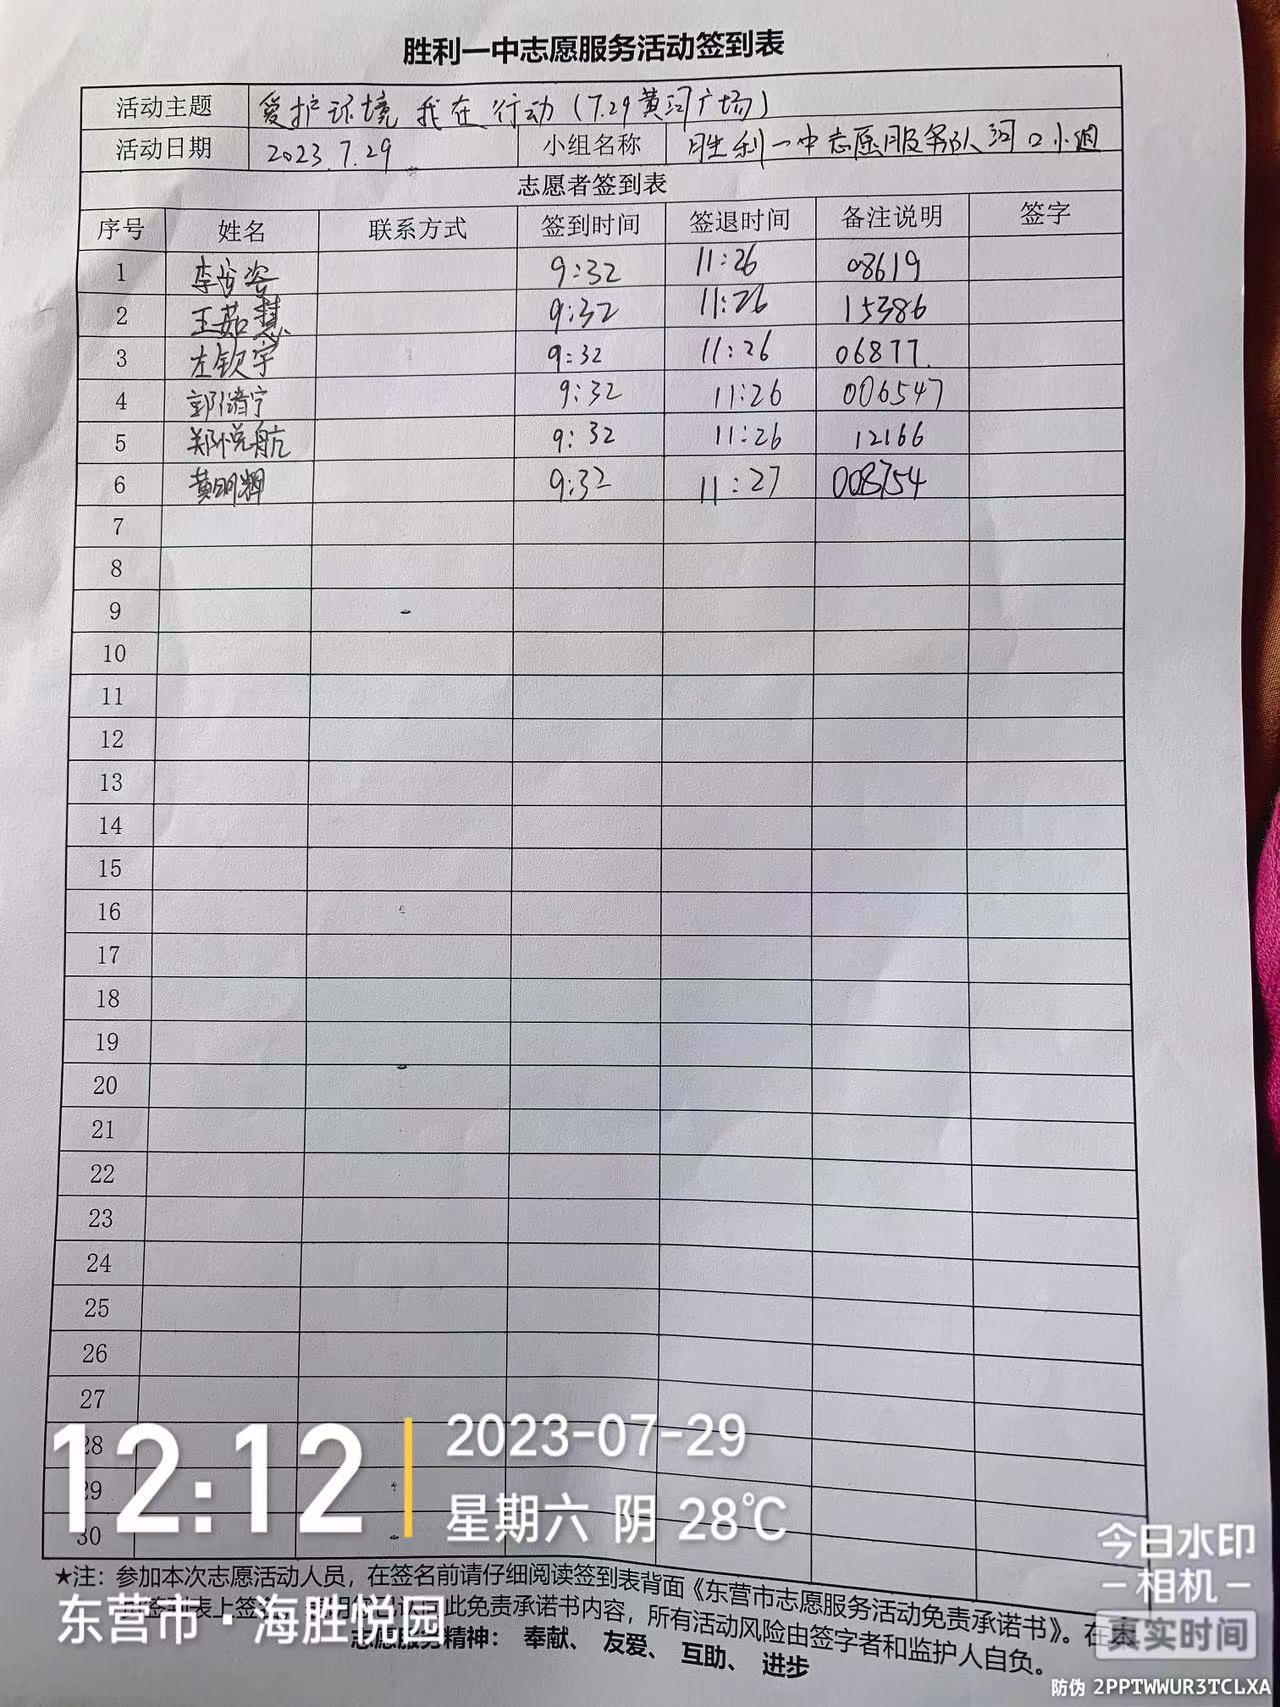 胜利一中志愿服务活动签到表
活动主题 爱护环境 我在行动（7.29黄河广场）
活动日期 2023.7.29 小组名称 胜利一中志愿服务队河口小组
志愿者签到表
序号 姓名 联系方式 签到时间 签退时间 备注说明 签字
1 李 姿 9:32 11:26 08619
2 王茹慧 9:32 11:26 15386
3 左钦宇 9:32 11:26 06877
4 郭 宁 9:32 11:26 006547
5 郑悦航 9:32 11:26 12166
6 黄明辉 9:32 11:27 008754
7
8
9
10
11
12
13
14
15
16
17
18
19
20
21
22
23
24
25
26
27
28
29
30
12:12
2023-07-29
星期六 阴 28℃
今日水印
相机
真实时间
★注：参加本次志愿活动人员，在签名前请仔细阅读签到表背面《东营市志愿服务活动免责承诺书》。在
签到表上签 此免责承诺书内容，所有活动风险由签字者和监护人自负。
东营市·海胜悦园
志愿服务精神： 奉献、 友爱、 互助、 进步
防伪 2PPTWWUR3TCLXA